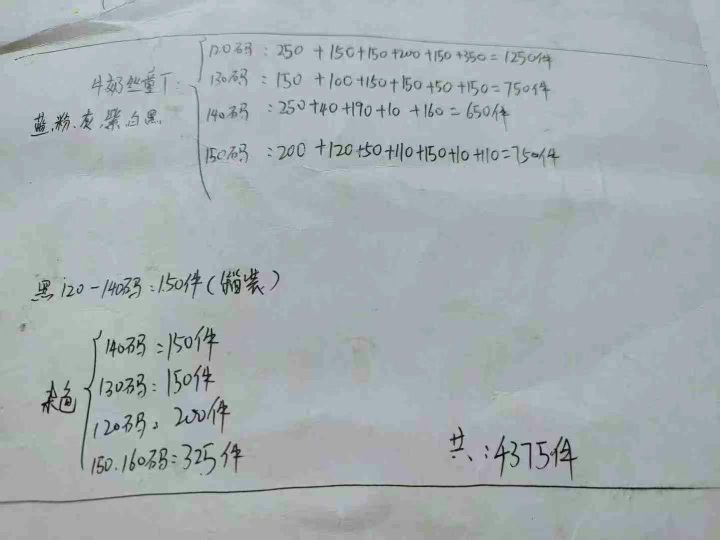 120码：250 +150+150+200+150+350=1250件
牛奶丝童T：130码：150 +100+150+150+50+150=750件
蓝.粉.灰.紫.白.黑
140码：250+40+190+10 +160=650件
150码：200 +120+50+110+150+10+110=750件
黑120-140码：150件(箱装)
140码：150件
杂色 130码：150件
120码：200件
150.160码：325件
共：4375件